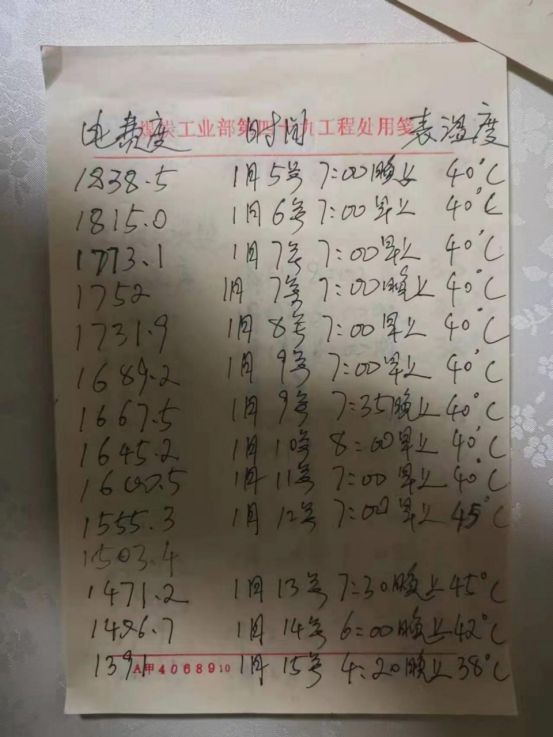 煤炭工业部第四十九工程处用笺
电费度 时间 表温度
1838.5 1月5号 7:00晚上 40°C
1815.0 1月6号 7:00早上 40°C
1773.1 1月7号 7:00早上 40°C
1752 1月7号 7:00晚上 40°C
1731.9 1月8号 7:00早上 40°C
1689.2 1月9号 7:00早上 40°C
1667.5 1月9号 7:35晚上 40°C
1645.2 1月10号 8:00早上 40°C
1600.5 1月11号 7:00早上 40°C
1555.3 1月12号 7:00早上 45°C
1503.4
1471.2 1月13号 7:30晚上 45°C
1436.7 1月14号 6:00晚上 42°C
1391 1月15号 4:20晚上 38°C
A甲4068910